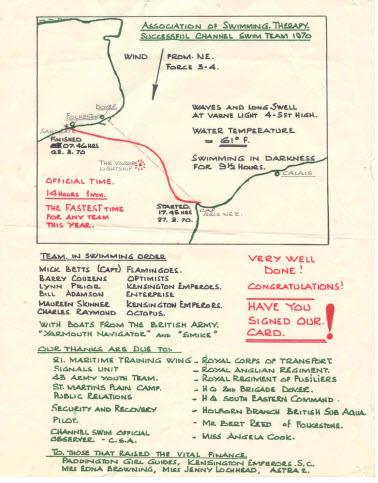 ASSOCIATION OF SWIMMING THERAPY.
SUCCESSFUL CHANNEL SWIM TEAM 1970
WIND FROM. NE.
FORCE 3-4.
DOVER.
FOLKESTONE
SANDGATE
FINISHED
07.46 HRS
28. 8. 70.
WAVES AND LONG SWELL
AT VARNE LIGHT 4-5FT HIGH.
WATER TEMPERATURE
= 61° F.
SWIMMING IN DARKNESS
FOR 9½ HOURS.
THE VARNE
LIGHTSHIP.
CALAIS
OFFICIAL TIME.
14 HOURS 1 MIN.
THE FASTEST TIME
FOR ANY TEAM
THIS YEAR.
STARTED
17.45 HRS
27. 8. 70.
CAP
GRIS NEZ.
TEAM, IN SWIMMING ORDER
MICK BETTS (CAPT) FLAMINGOES.
BARRY COUZENS OPTIMISTS
LYNN PRIOR KENSINGTON EMPERORS.
BILL ADAMSON ENTERPRISE
MAUREEN SKINNER KENSINGTON EMPERORS.
CHARLES RAYMOND OCTOPUS.
WITH BOATS FROM THE BRITISH ARMY.
"YARMOUTH NAVIGATOR." AND "SMIKE"
VERY WELL
DONE!
CONGRATULATIONS!
HAVE YOU
SIGNED OUR
CARD. !
OUR THANKS ARE DUE TO:-
21. MARITIME TRAINING WING - ROYAL CORPS OF TRANSPORT.
SIGNALS UNIT - ROYAL ANGLIAN REGIMENT.
43 ARMY YOUTH TEAM. - ROYAL REGIMENT OF FUSILIERS
ST. MARTINS PLAIN CAMP. - HQ 2ND BRIGADE DOVER.
PUBLIC RELATIONS - HQ SOUTH EASTERN COMMAND.
SECURITY AND RECOVERY - HOLBORN BRANCH BRITISH SUB AQUA.
PILOT. - MR BERT REED OF FOLKESTONE.
CHANNEL SWIM OFFICIAL
OBSERVER - C.S.A. - MISS ANGELA COOK.
TO THOSE THAT RAISED THE VITAL FINANCE,
PADDINGTON GIRL GUIDES, KENSINGTON EMPERORS S.C.
MRS EDNA BROWNING, MISS JENNY LOCHHEAD, ASTRA 2.